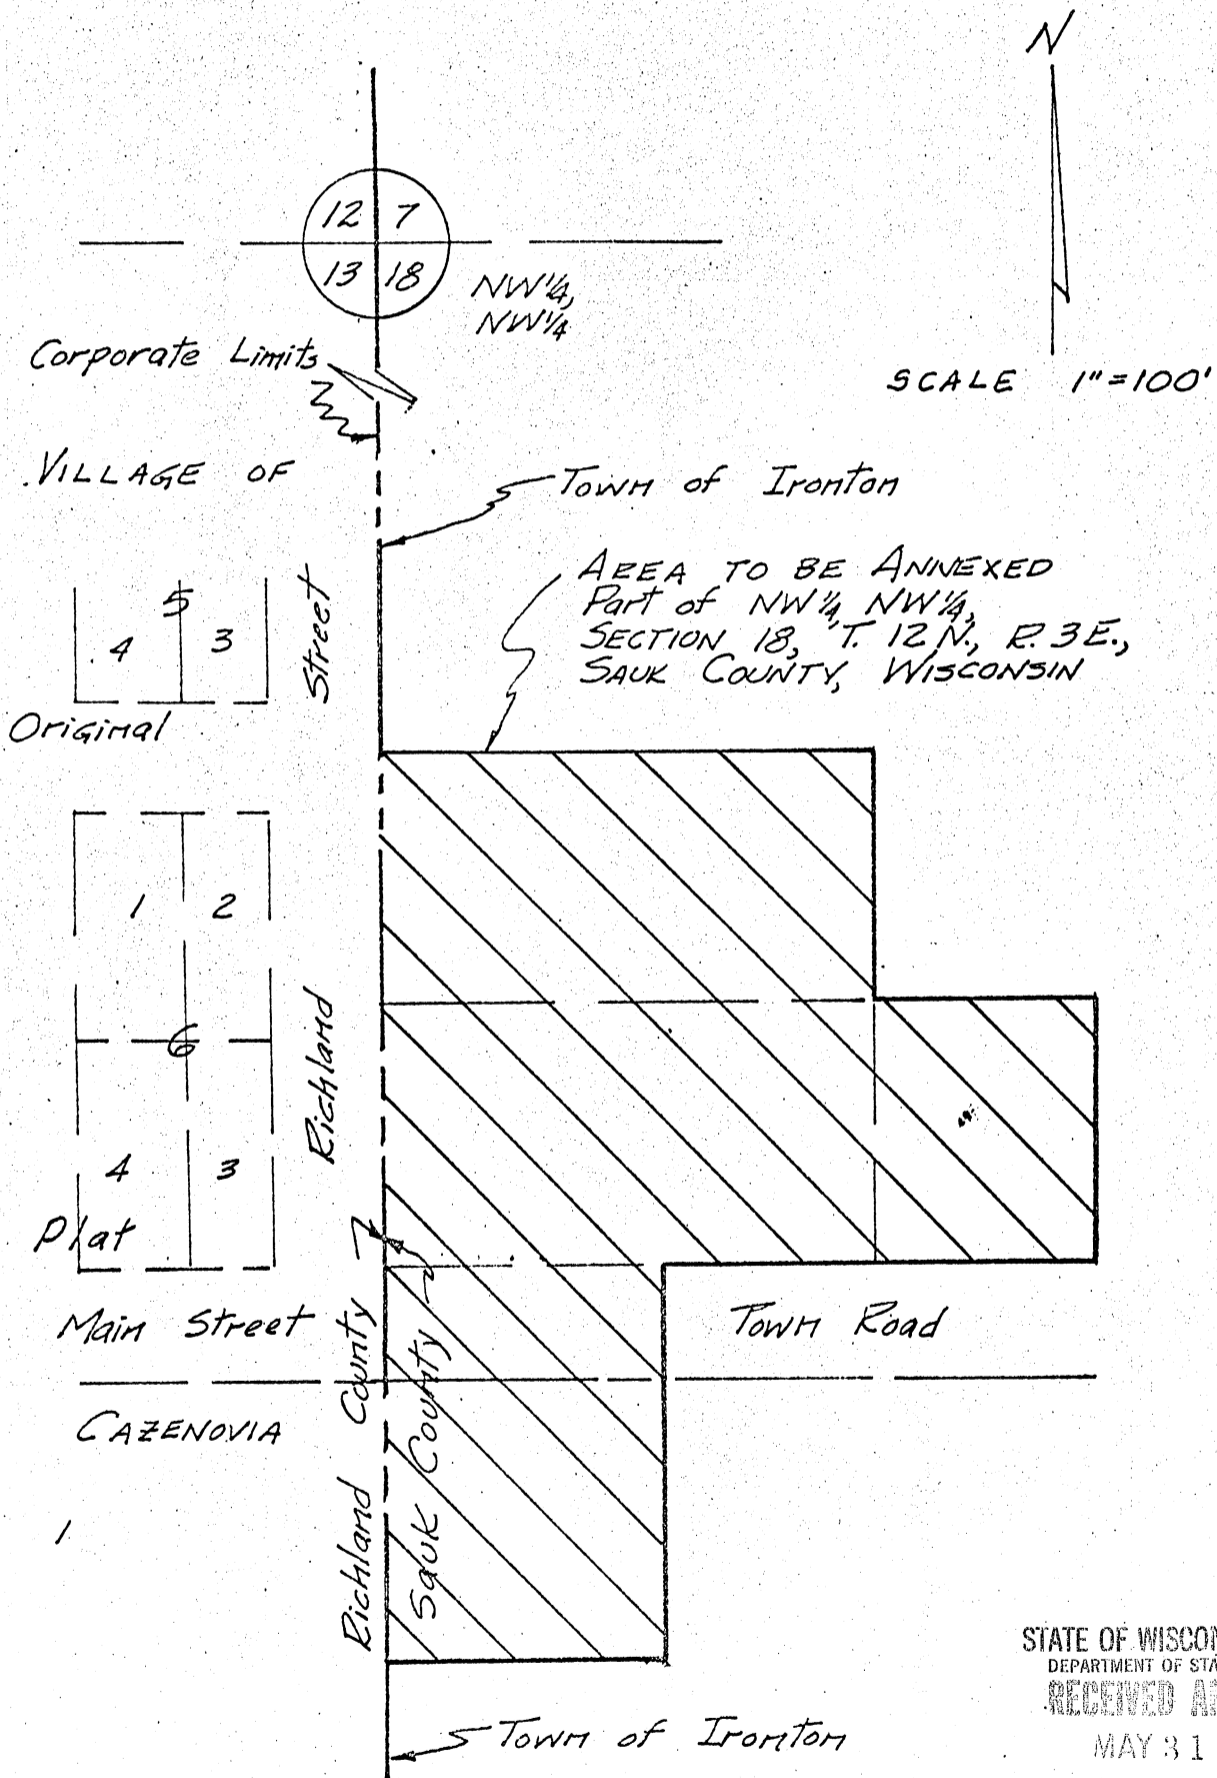 N
12 7
13 18
NW¼,
NW¼
Corporate Limits
SCALE 1"=100'
VILLAGE OF
Town of Ironton
AREA TO BE ANNEXED
Part of NW¼, NW¼,
SECTION 18, T. 12 N., R. 3 E.,
SAUK COUNTY, WISCONSIN
5
4 3
Street
Original
1 2
6
Richland
4 3
Plat
Main Street
Town Road
CAZENOVIA
Richland County
Sauk County
1
Town of Ironton
STATE OF WISCON
DEPARTMENT OF STA
RECEIVED A
MAY 31